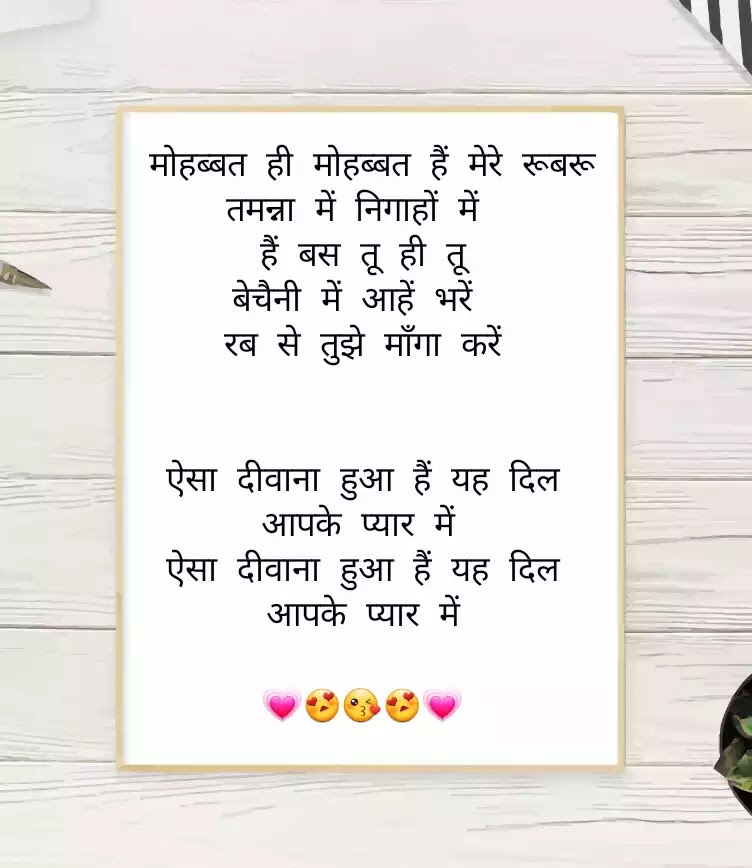 मोहब्बत ही मोहब्बत हैं मेरे रूबरू
तमन्ना में निगाहों में
हैं बस तू ही तू
बेचैनी में आहें भरें
रब से तुझे माँगा करें
ऐसा दीवाना हुआ हैं यह दिल
आपके प्यार में
ऐसा दीवाना हुआ हैं यह दिल
आपके प्यार में
💗😍😘😍💗